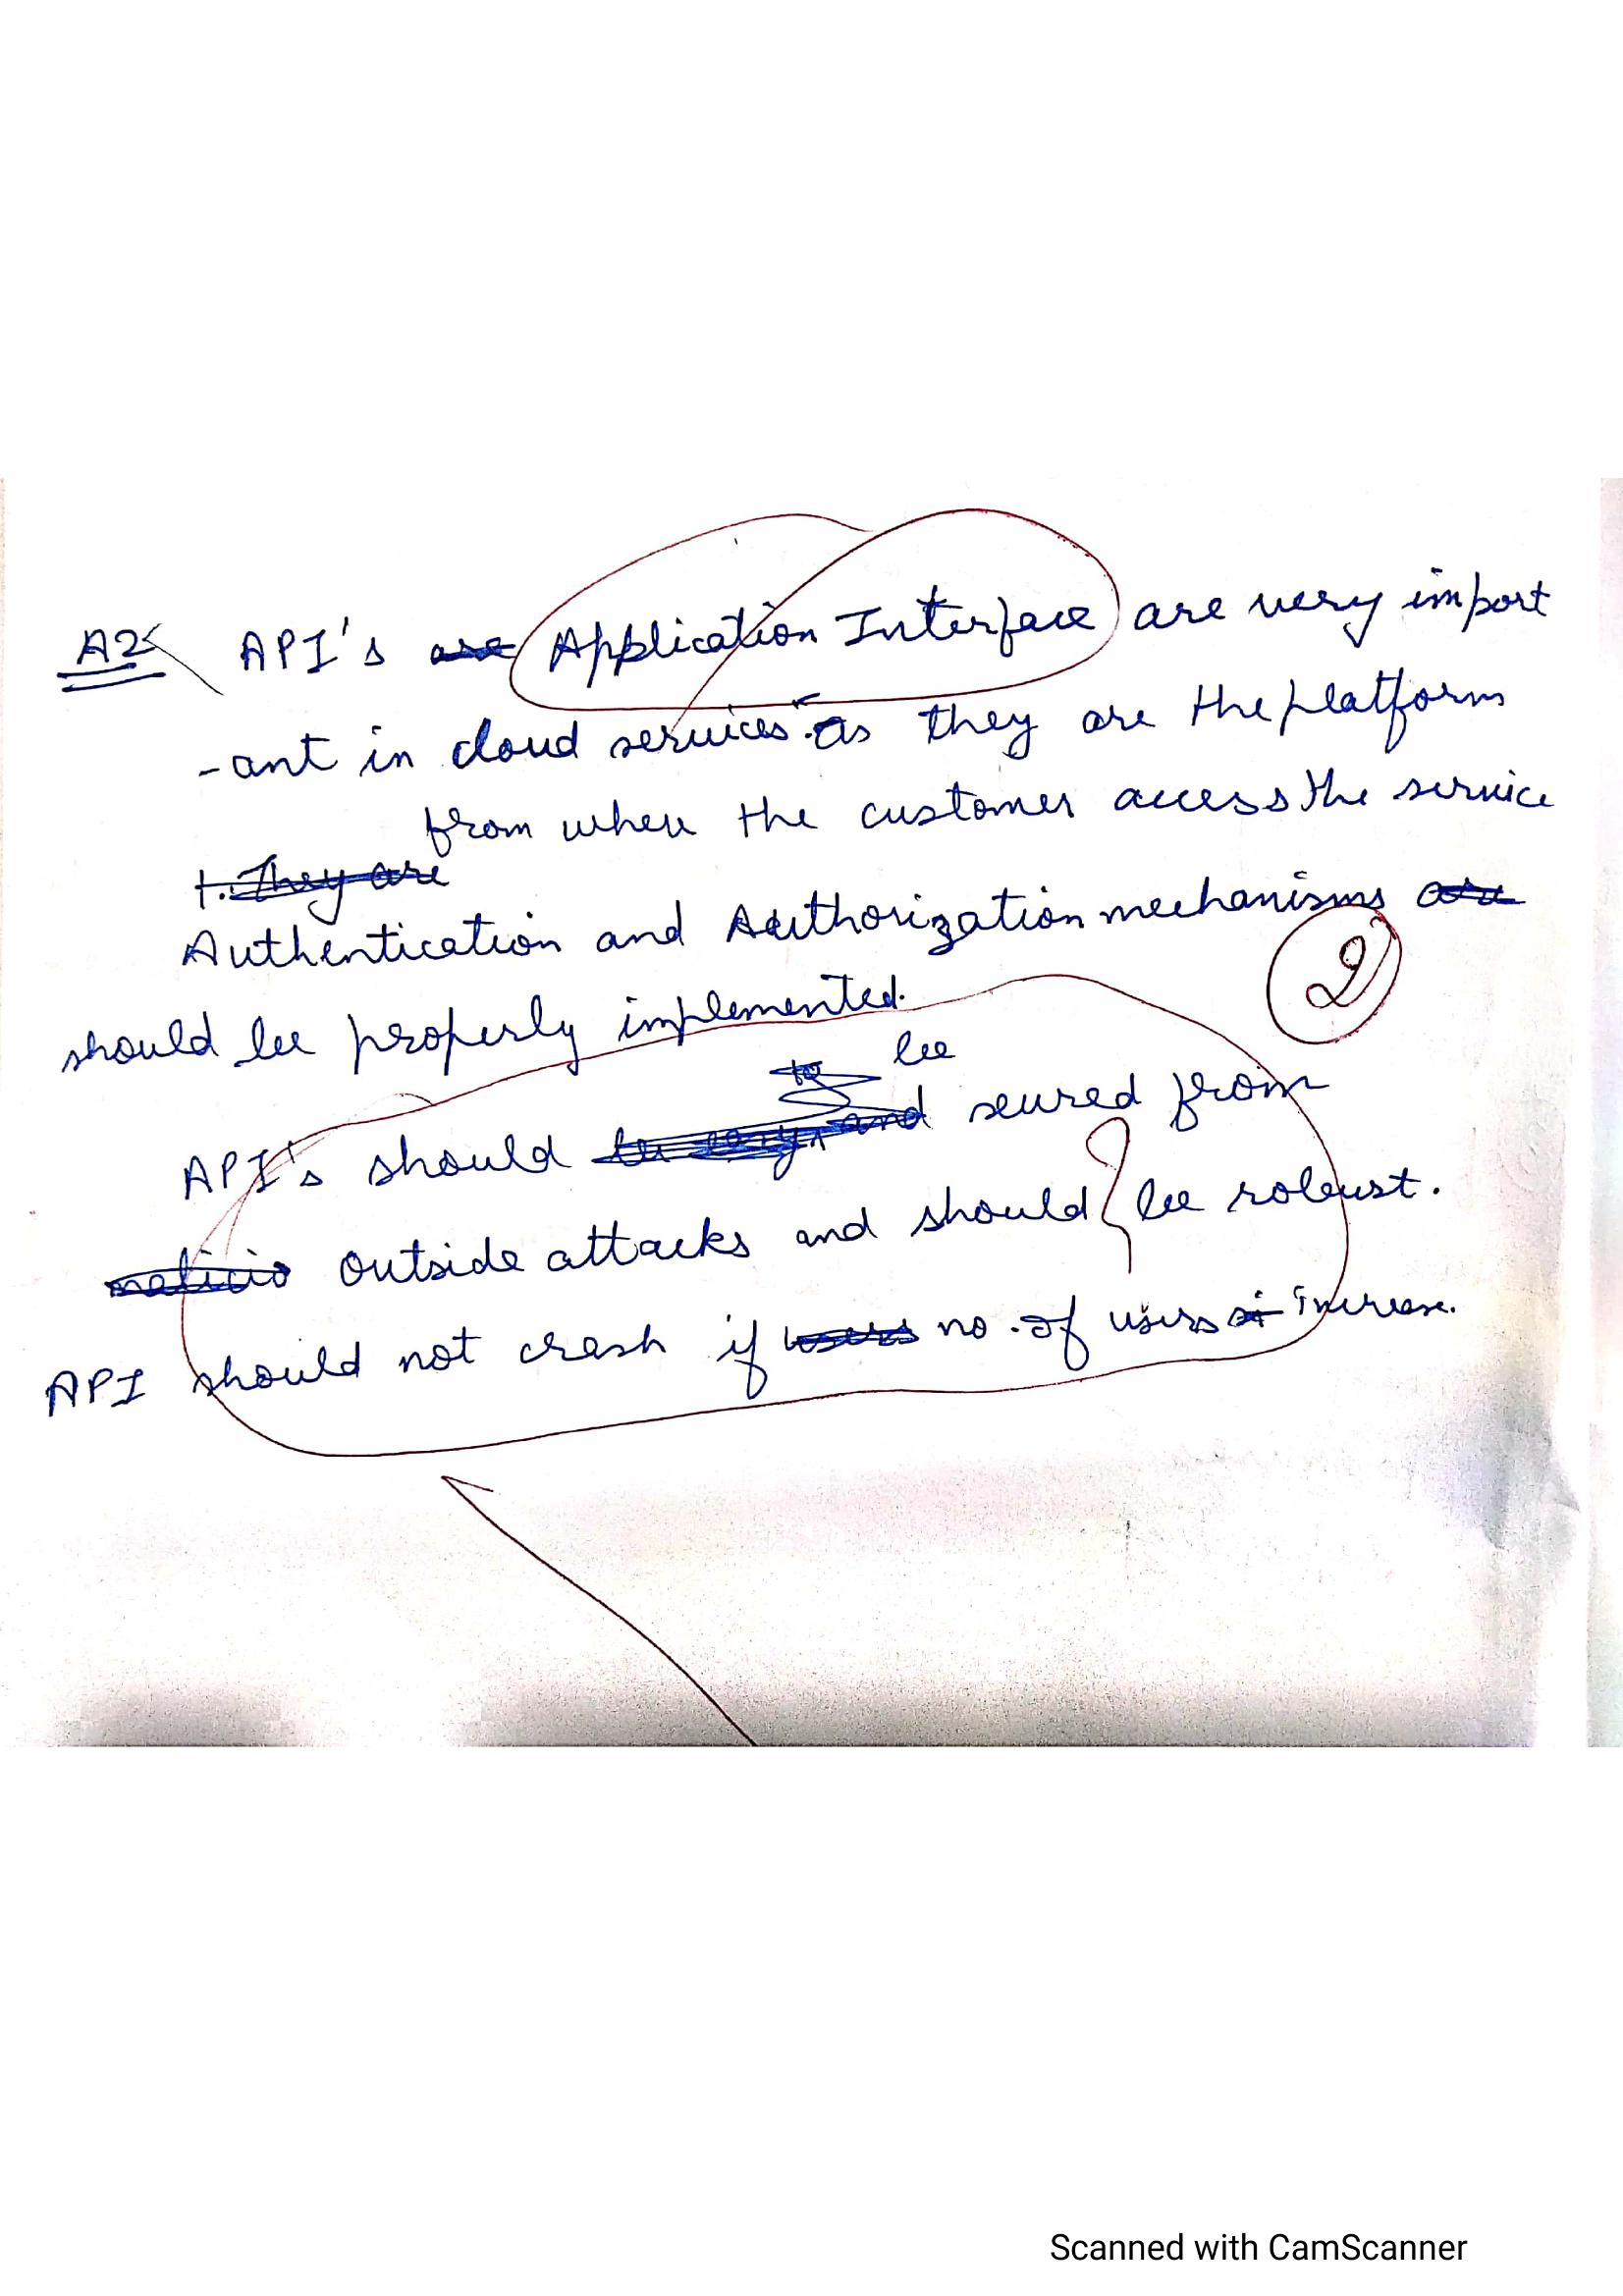 A2 API's are Application Interface are very import
-ant in cloud services as they are the platform
from where the customer access the service
1. They are
Authentication and Authorization mechanisms are
should be properly implemented.
2
to be
API's should be easy and seured from
malicio outside attacks and should be robust.
API should not crash if users no. of users si increase.
Scanned with CamScanner